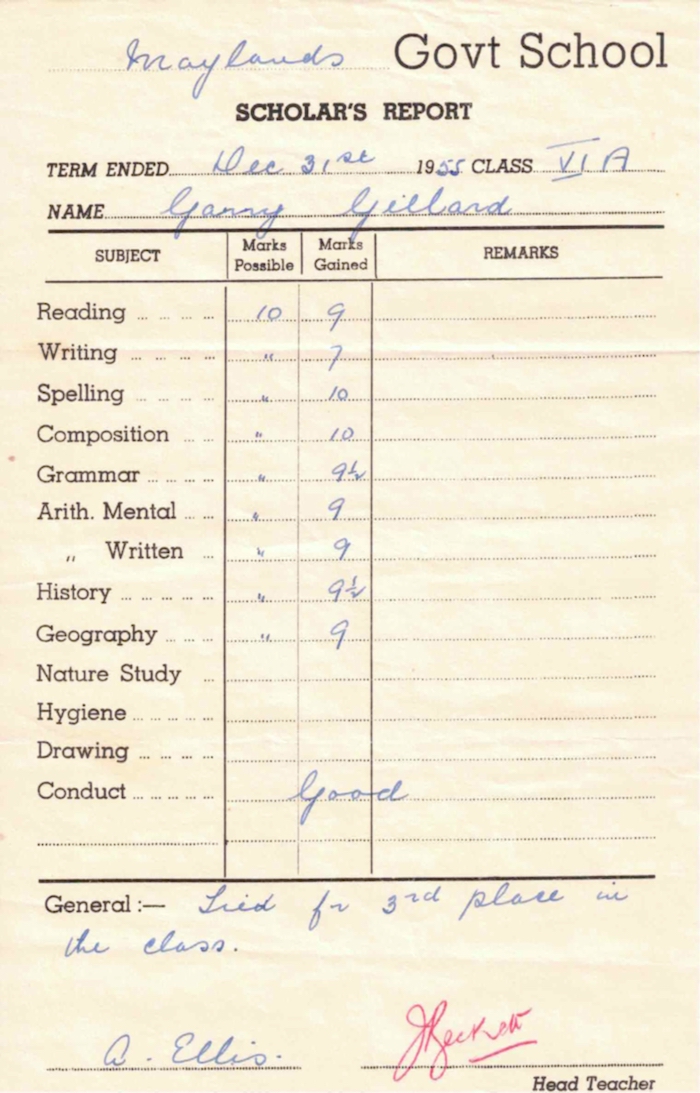 Maylands Govt School
SCHOLAR'S REPORT
TERM ENDED Dec 31st 1955 CLASS VI A
NAME Garry Gillard
SUBJECT Marks Possible Marks Gained REMARKS
Reading 10 9
Writing " 7
Spelling " 10
Composition " 10
Grammar " 9½
Arith. Mental " 9
" Written " 9
History " 9½
Geography " 9
Nature Study
Hygiene
Drawing
Conduct Good
General :— Tied for 3rd place in
the class.
A. Ellis. J Beckett
Head Teacher